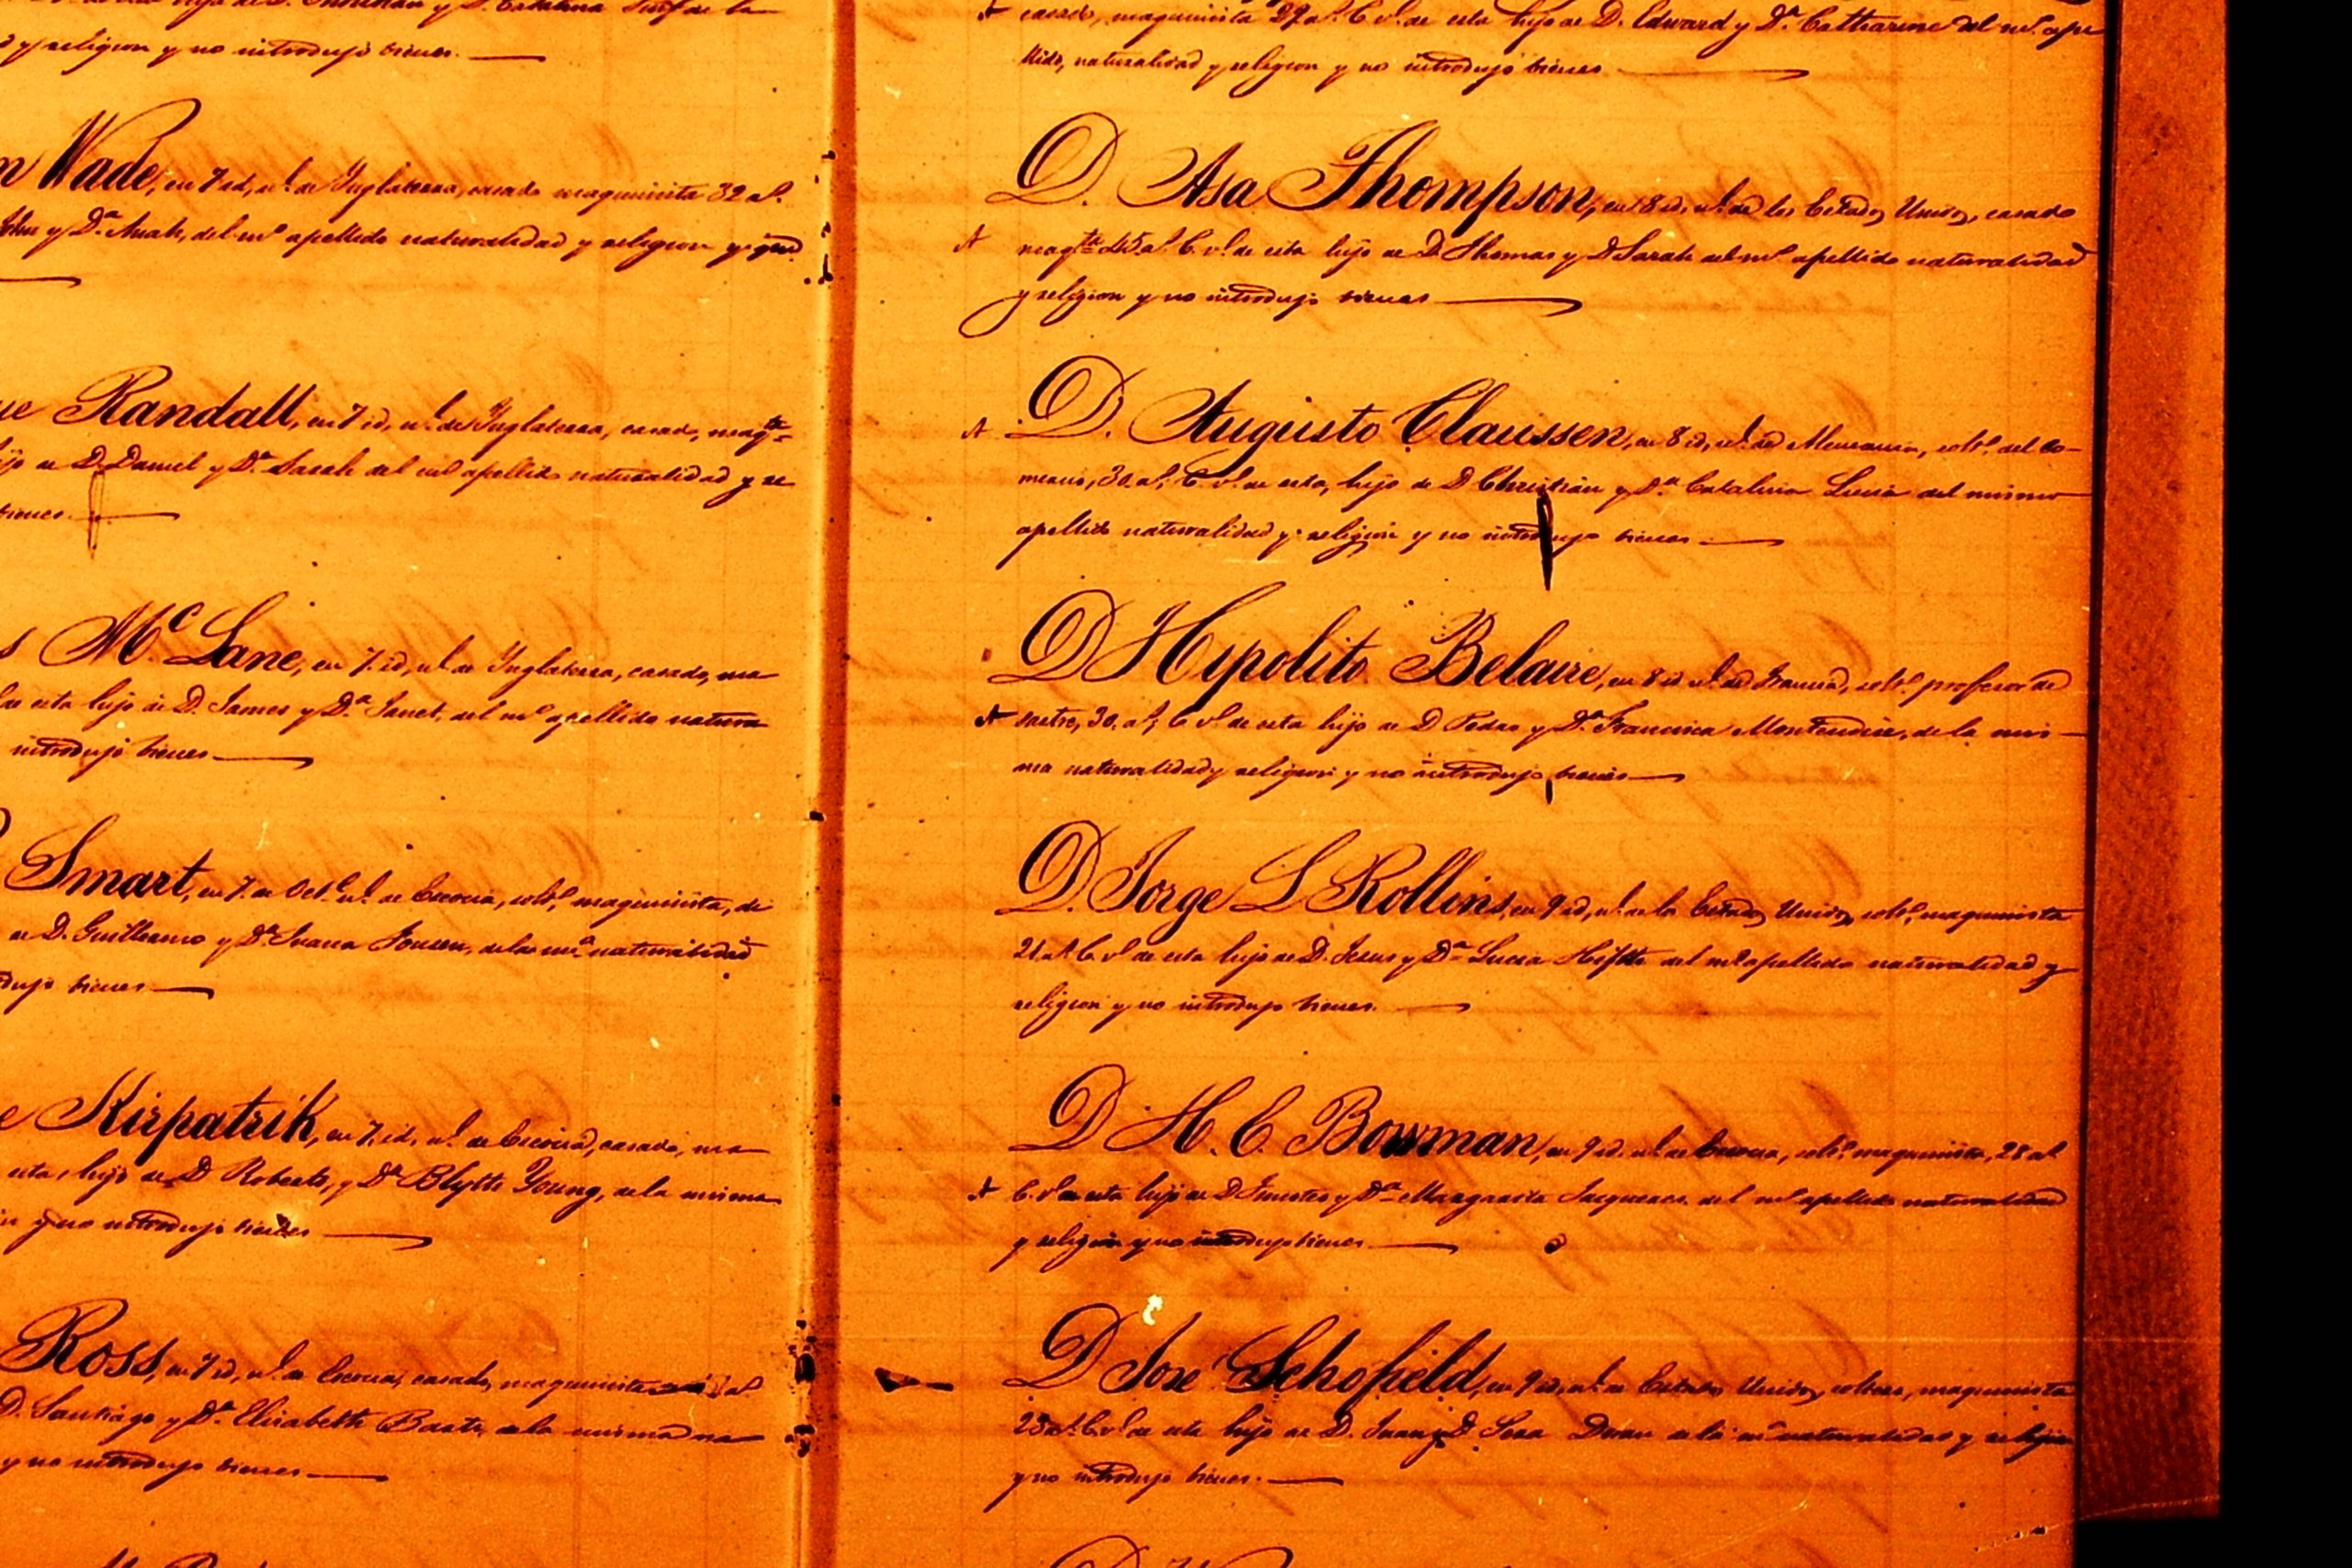 y religion y no introdujo bienes.
Wade, en 7 id, nl. de Inglaterra, casado maquinista 32 al.
y Da. Anah, del ml apellido naturalidad y religion y que
Randall, en 7 id, nl. de Inglaterra, casado, maqta
hijo de D. Daniel y Da. Sarah del ml apellido naturalidad y re
bienes.
Mc Lane, en 7 id, nl. de Inglaterra, casado, ma
de esta hijo de D. James y Da. Janet, del ml apellido natura
introdujo bienes
Smart, en 7 de Octe. nl. de Escocia, solto, maquinista, de
de D. Guillermo y Da. Juana Jonsen, de la ma. naturalidad
bienes
Kirpatrik, en 7 id, nl. de Escocia, casado, ma
esta, hijo de D Roberto, y Da Blytte Young, de la misma
y no introdujo bienes
Ross, en 7 id, nl. de Escocia, casado, maquinista al
D. Santiago y Da. Elisabeth de la misma na
y no introdujo bienes
casado, maquinista 29 al. C. vl. de esta hijo de D. Edward y Da. Catharine del ml. ape
llido, naturalidad y religion y no introdujo bienes
D. Asa Thompson, en 8 id, nl. de los Estados Unidos, casado
maqta 45 al. C. vl. de esta hijo de D Thomas y D Sarah del ml apellido naturalidad
y religion y no introdujo bienes
D. Augusto Claussen, en 8 id, nl. de solto. del co-
mercio, 30 al; C. vl. de esta, hijo de D Christian y Da. Catalina Lucia del mismo
apellido naturalidad y religion y no introdujo bienes
D Hipolito Belaire, en 8 id nl. de Francia, solto. profesor de
sastre, 30 al; C vl. de esta hijo de D Pedro y Da. Francisca de la mis-
ma naturalidad y religion y no introdujo bienes
D. Jorge L Rollins, en 9 id, nl. de los Estados Unidos, solto, maquinista
21 al. C. vl. de esta hijo de D. Jesus y Da Lucia del ml apellido naturalidad y
religion y no introdujo bienes.
D H. E. Bowman, en 9 id. nl. de Escocia, solto. maquinista, 28 al.
C. vl de esta hijo de D y Da Margarita del ml apellido naturalidad
y religion y no introdujo bienes
D Jose Schofield, en 9 id, nl. de Estados Unidos, soltero, maquinista
25 al. C. vl. de esta hijo de D. Juan y D. de la ma. naturalidad y religion
y no introdujo bienes.